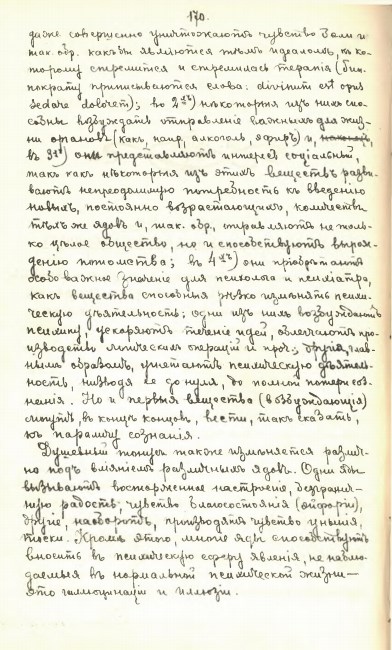 170.
даже совершенно уничтожаютъ чувство боли и
так. обр. какъ бы являются тѣмъ идеаломъ, къ ко-
торому стремится и стремилась терапія (Гип-
пократу приписываются слова: divinum est opus
sedare dolorem); во 2ыхъ) нѣкоторыя изъ нихъ спо-
собны возбуждать отправленіе важныхъ для жиз-
ни органовъ (какъ, напр, алкоголь, эфиръ) и,
въ 3ьихъ) они представляютъ интересъ соціальный,
такъ какъ нѣкоторыя изъ этихъ веществъ разви-
ваютъ непреодолимую потребность къ введенію
новыхъ, постоянно возрастающихъ, количествъ
тѣхъ же ядовъ и, так. обр., отравляютъ не толь-
ко цѣлое общество, но и способствуютъ вырож-
денію потомства; въ 4ыхъ) они пріобрѣтаютъ
особо важное значеніе для психолога и психіатра,
какъ вещества способныя рѣзко измѣнять психи-
ческую дѣятельность; одни изъ нихъ возбуждаютъ
психику, ускоряютъ теченіе идей, облегчаютъ про-
изводство логическихъ операцій и проч.; другія, глав-
нымъ образомъ, угнетаютъ психическую дѣятель-
ность, низводя ее до нуля, до полной потери соз-
нанія. Но и первыя вещества (возбуждающія)
могутъ, въ концѣ концовъ, вести, такъ сказать,
къ параличу сознанія.
Душевный тонусъ также измѣняется различ-
но подъ вліяніемъ различныхъ ядовъ. Одни яды
вызываютъ восторженное настроеніе, безгранич-
ную радость, чувство благосостоянія (эйфорію),
другіе, наоборотъ, производятъ чувство унынія,
тоски. Кромѣ этого, многіе яды способствуютъ
вносить въ психическую сферу явленія, не наблю-
даемыя въ нормальной психической жизни—
это галлюцинаціи и иллюзіи.